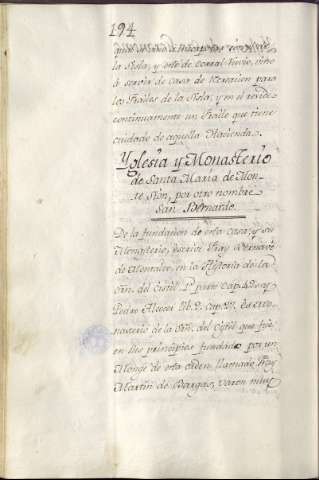 194
la Sisla, y este de Corral Rubio, vino
à servir de casa de Recreacion para
los Frailes de la Sisla, y en el reside
continuamente un Fraile que tiene
cuidado de aquella Hacienda.
Yglesia y Monasterio
de Santa Maria de Mon-
te Sion, por otro nombre
San Bernardo.
De la fundacion de esta casa, y su
Monasterio, escrive Fray Bernavè
de Montalvo, en la Historia de la
Orn. del Cistèl P.
Pedro Alcocer
que fuè
en sus principios fundado por un
Monge de esta orden, llamado Fray
Martin de Bargas, varon muy